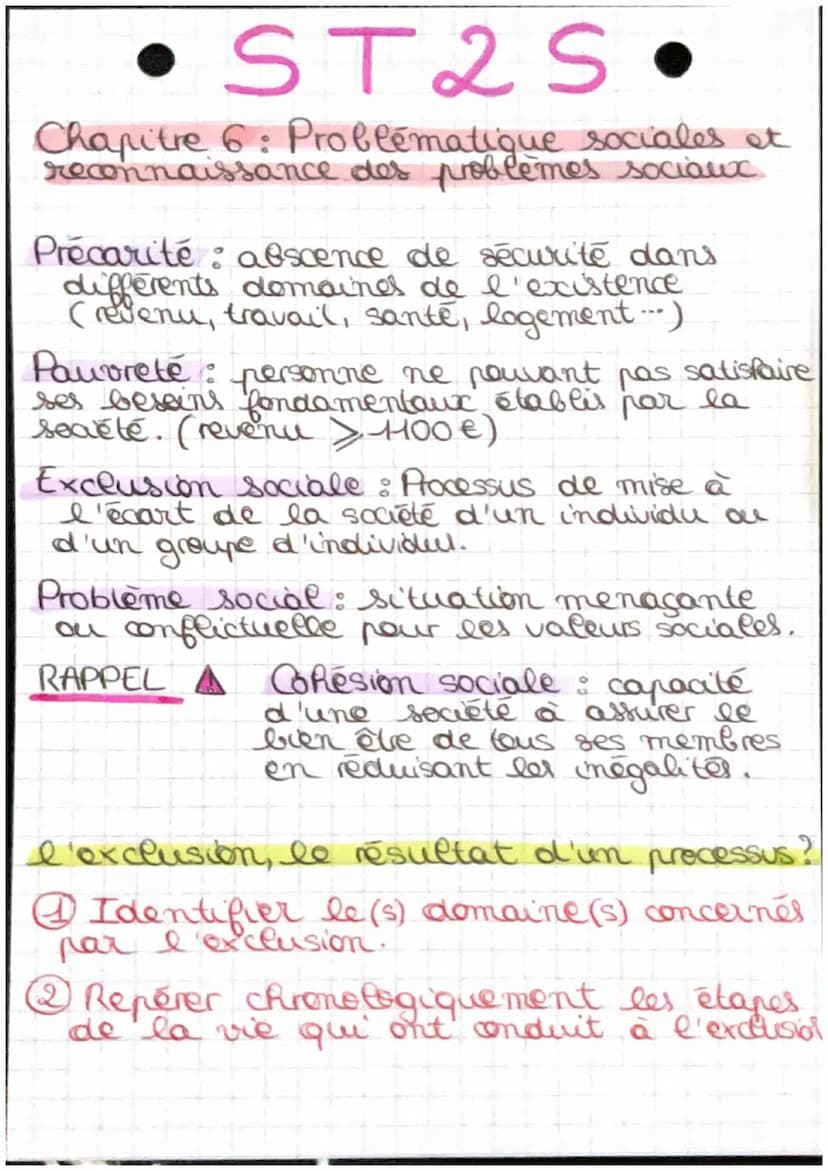 • ST2S •
Chapitre 6 : Problématique sociales et
reconnaissance des problèmes sociaux
Précarité : absence de sécurité dans
différents domaines de l'existence
(revenu, travail, santé, logement...)
Pauvreté : personne ne pouvant pas satisfaire
ses besoins fondamentaux établis par la
société. (revenu ⩾ 1100 €)
Exclusion sociale : Processus de mise à
l'écart de la société d'un individu ou
d'un groupe d'individus.
Problème social : situation menaçante
ou conflictuelle pour les valeurs sociales.
RAPPEL Cohésion sociale : capacité
d'une société à assurer le
bien être de tous ses membres
en réduisant les inégalités.
l'exclusion, le résultat d'un processus ?
① Identifier le(s) domaine(s) concernés
par l'exclusion.
② Repérer chronologiquement les étapes
de la vie qui ont conduit à l'exclusion